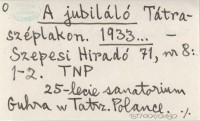 0 A jubiláló Tátra-
széplakon. 1933... —
Szepesi Hiradó 71, nr 8:
1-2. TNP
25-lecie sanatorium
Guhra w Tatrz. Polance. ·/.